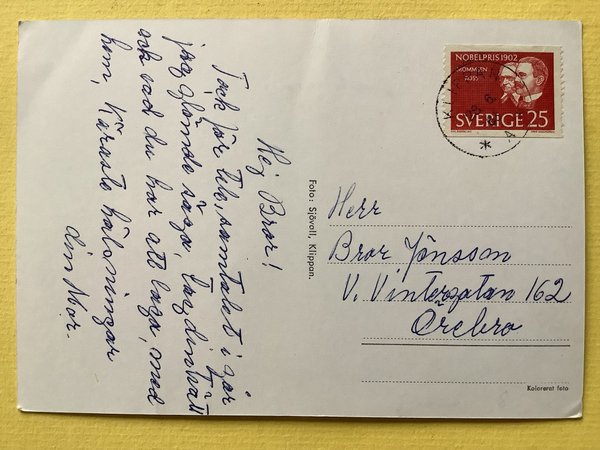 Hej Bror!
Tack för tel, samtalet i går
jag glömde säga, tag din tvätt
och vad du har att laga, med
hem, Käraste hälsningar
din Mor.
Foto: Sjövoll, Klippan.
NOBELPRIS 1902
MOMMSEN
ROSS
SVERIGE 25
Herr
Bror Jönsson
V. Vintergatan 162
Örebro
Kolorerat foto